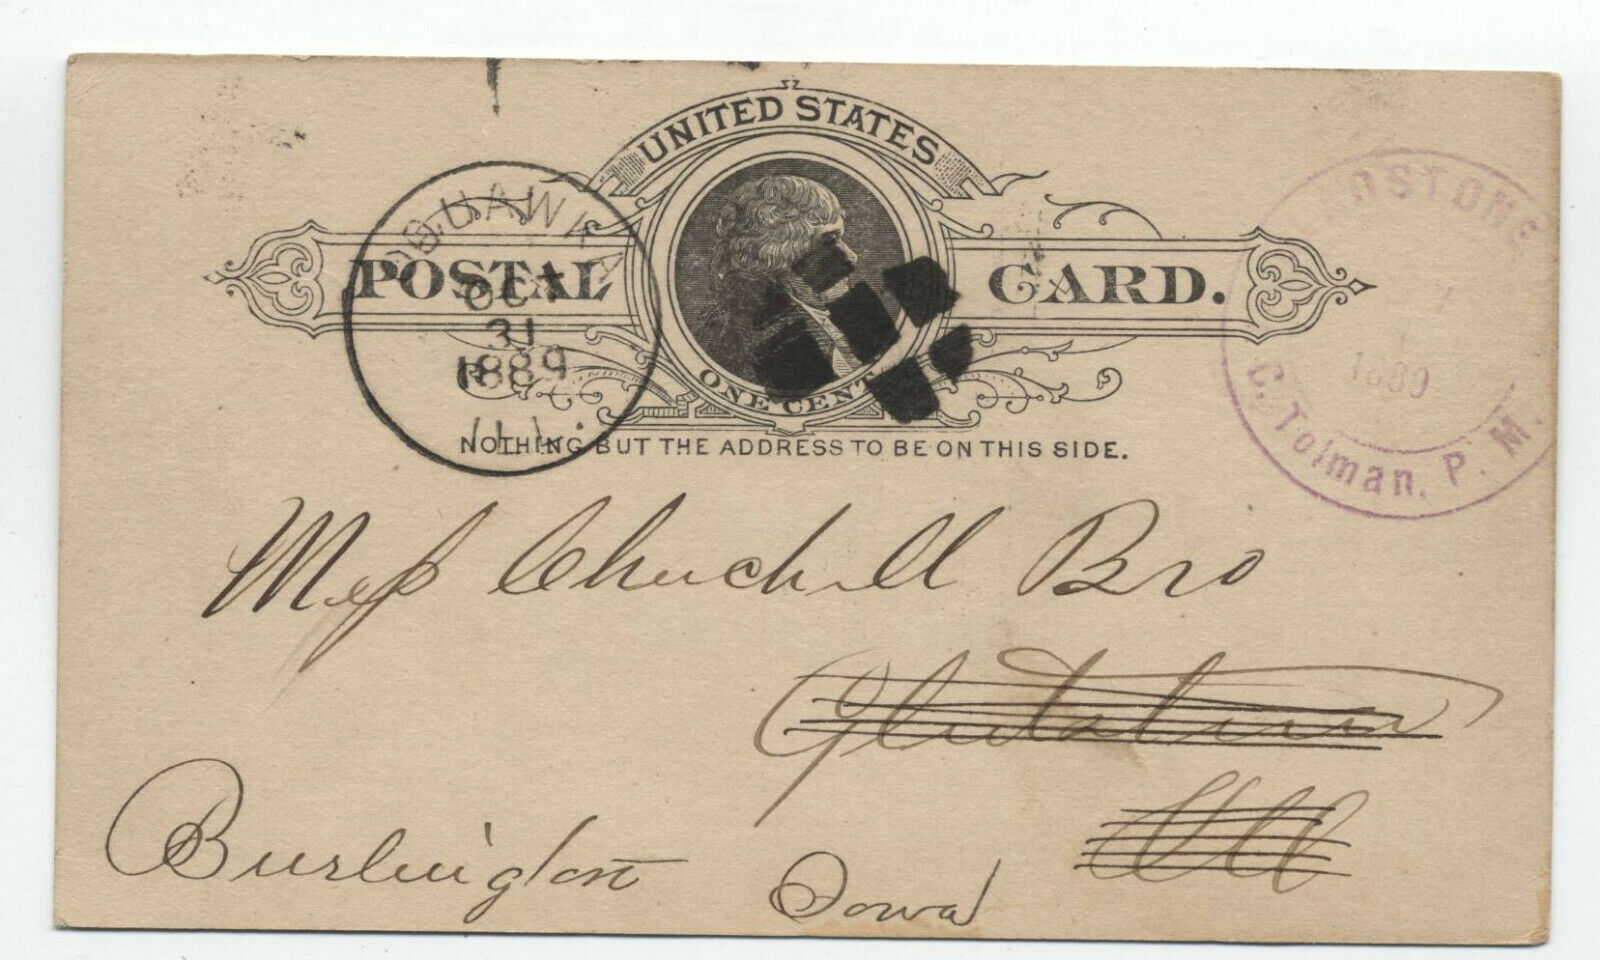 UNITED STATES
POSTAL CARD.
ONE CENT
NOTHING BUT THE ADDRESS TO BE ON THIS SIDE.
OQUAWKA
OCT
31
1889
ILL.
1889
C. Tolman, P. M.
Mess Churchill Bro
Gladstone
Ill
Burlington Iowa